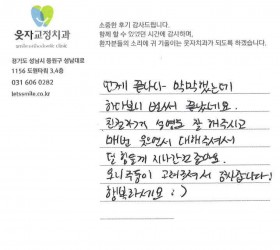 웃자교정치과
경기도 성남시 중원구 성남대로
1156 도원타워 3,4층
031 606 0282
letssmile.co.kr
소중한 후기 감사드립니다.
함께 할 수 있었던 시간에 감사하며,
환자분들의 소리에 귀 기울이는 웃자치과가 되도록 하겠습니다.
언제 끝나나 막막했는데
하다보니 벌써 끝났네요.
친절하게 설명도 잘 해주시고
매번 웃으면서 대해주셔서
덜 힘들게 지나간것 같아요.
오니 주둥이 고쳐주셔서 감사합니다!
행복하세요 : )